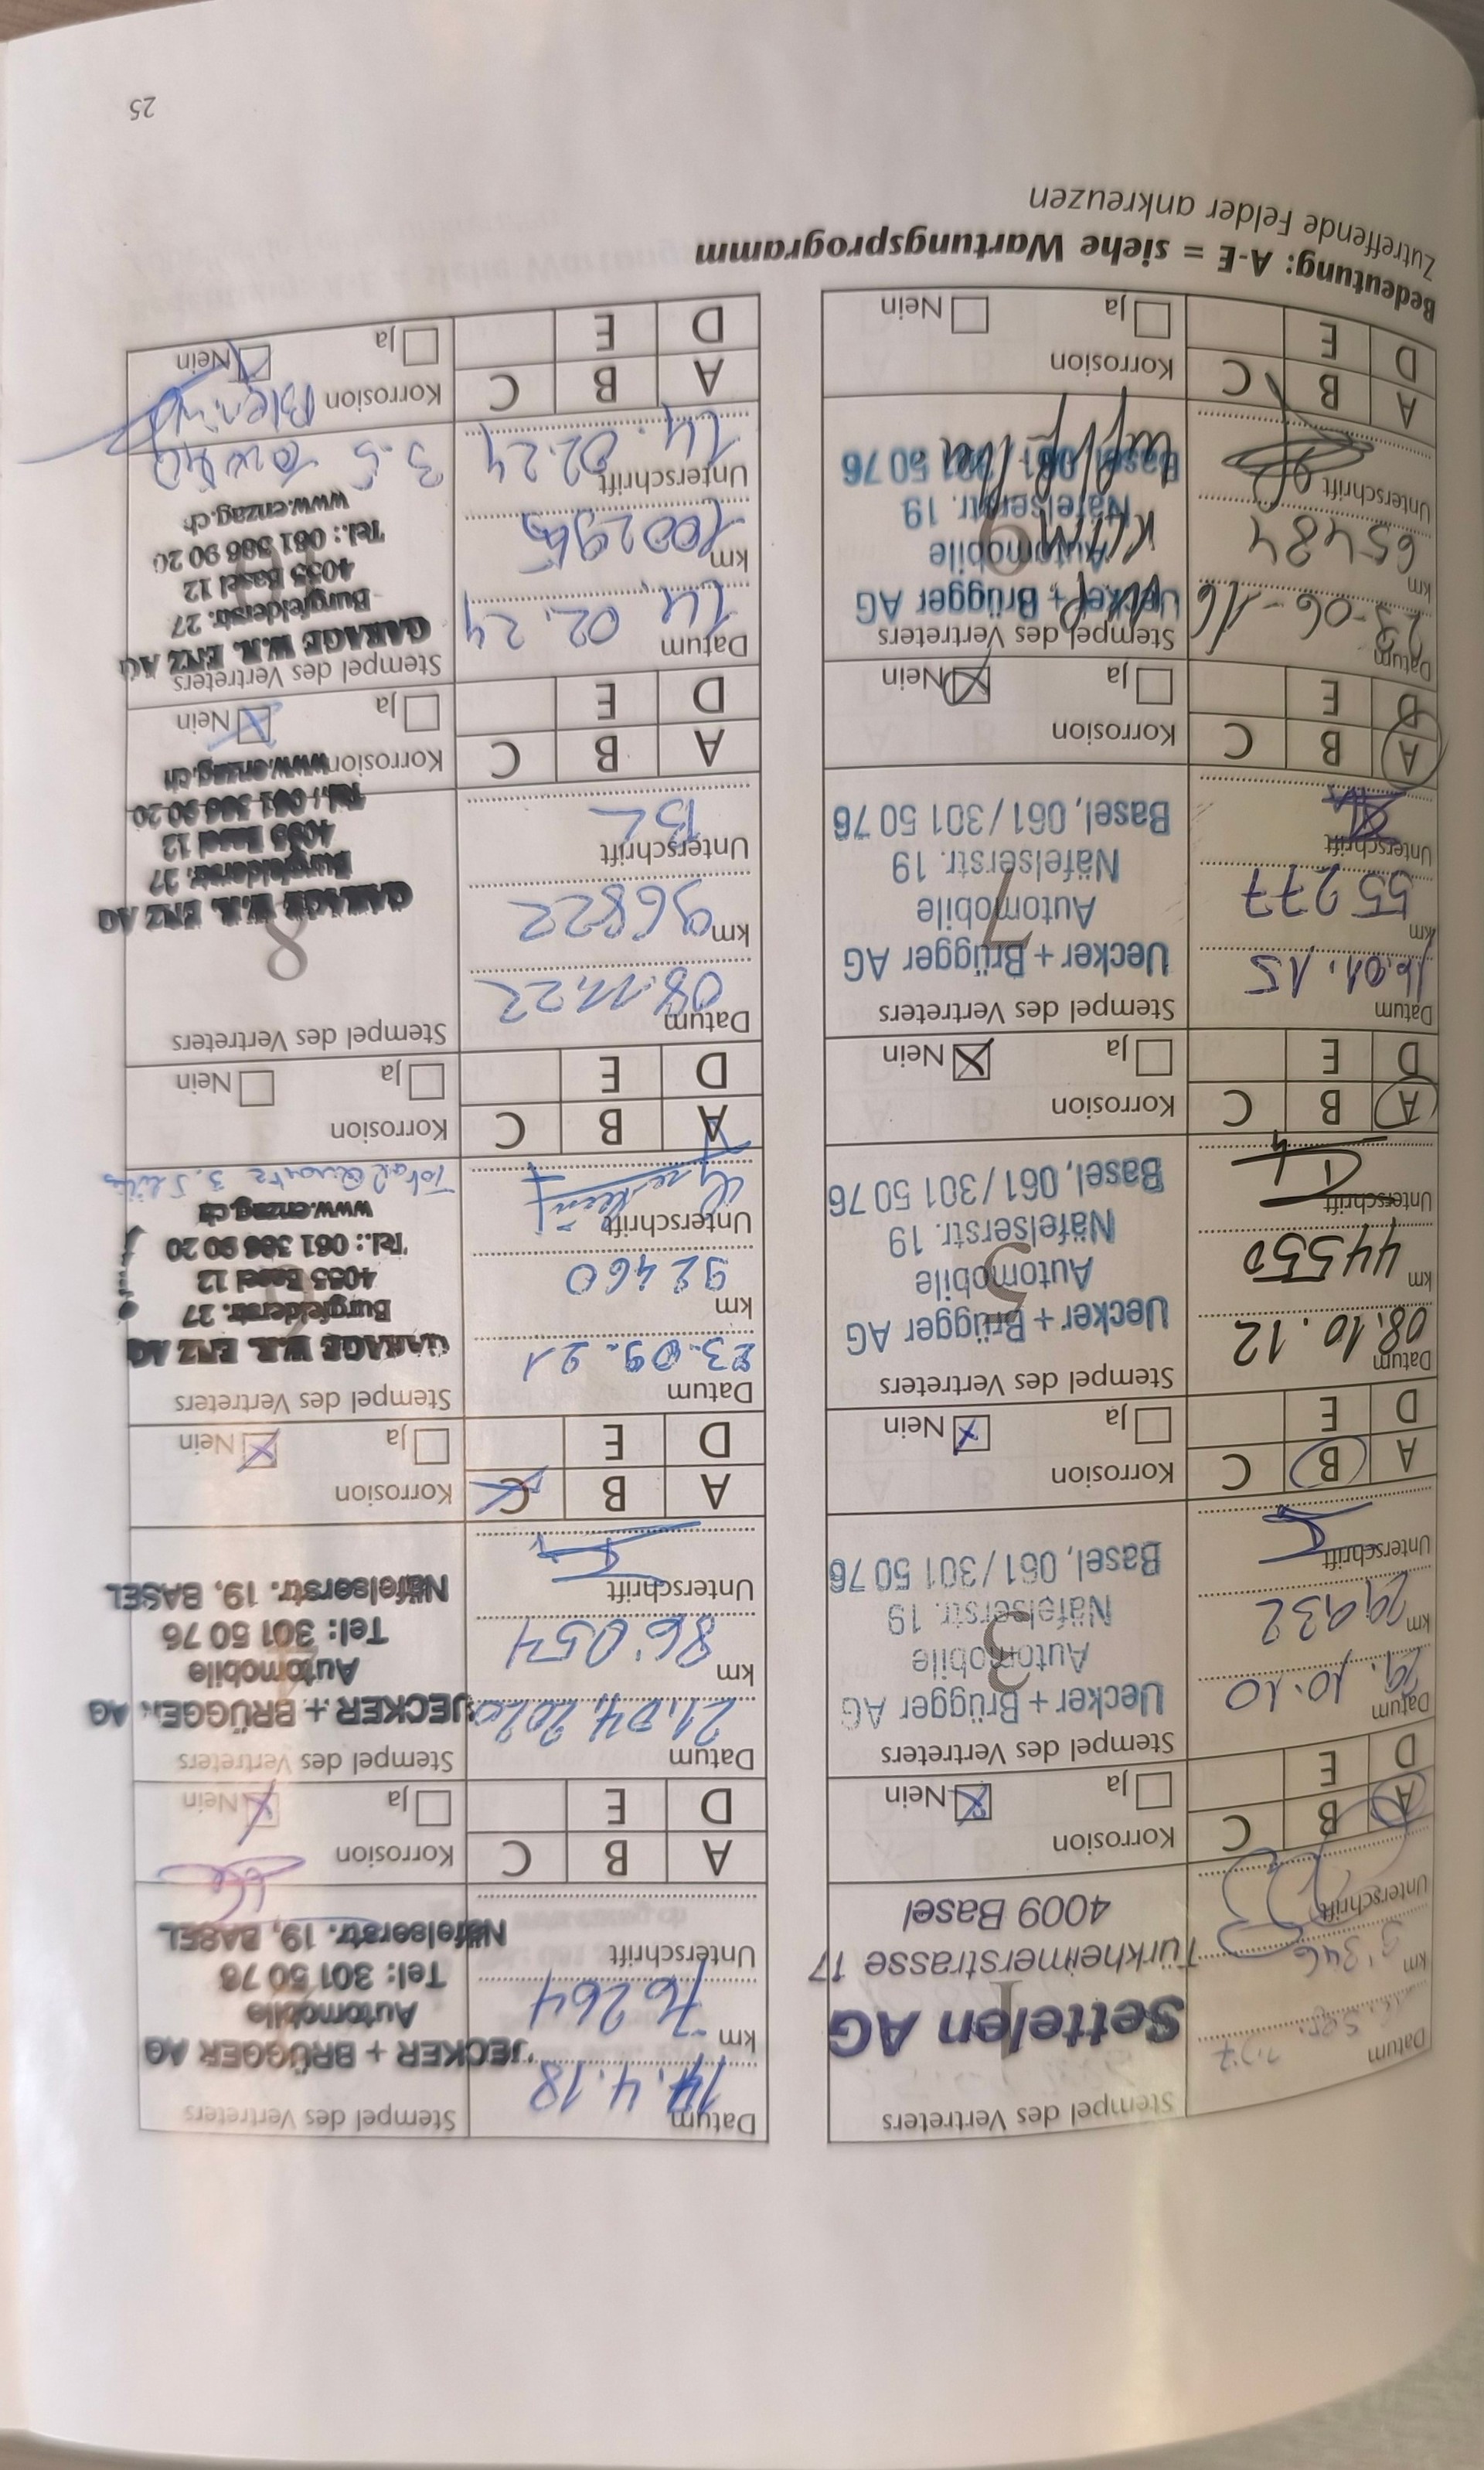 Stempel des Vertreters
Settelen AG
Türkheimerstrasse 17
4009 Basel
1
Datum
km
Unterschrift
A B C
D E
Korrosion
Ja Nein
Stempel des Vertreters
Uecker + Brügger AG
Automobile
Näfelserstr. 19
Basel, 061/301 50 76
3
Datum
29.10.10
km
29932
Unterschrift
A B C
D E
Korrosion
Ja Nein
Stempel des Vertreters
Uecker + Brügger AG
Automobile
Näfelserstr. 19
Basel, 061/301 50 76
5
Datum
08.10.12
km
44550
Unterschrift
A B C
D E
Korrosion
Ja Nein
Stempel des Vertreters
Uecker + Brügger AG
Automobile
Näfelserstr. 19
Basel, 061/301 50 76
7
Datum
16.01.15
km
55277
Unterschrift
A B C
D E
Korrosion
Ja Nein
Stempel des Vertreters
Uecker + Brügger AG
Automobile
Näfelserstr. 19
Basel, 061/301 50 76
9
Datum
23-06-16
km
65484
Unterschrift
A B C
D E
Korrosion
Ja Nein
Bedeutung: A-E = siehe Wartungsprogramm
Zutreffende Felder ankreuzen
Datum
14.4.18
km
76264
Unterschrift
Stempel des Vertreters
UECKER + BRÜGGER AG
Automobile
Tel: 301 50 76
Näfelserstr. 19, BASEL
A B C
D E
Korrosion
Ja Nein
Datum
21.04.2020
km
86'054
Unterschrift
Stempel des Vertreters
UECKER + BRÜGGER AG
Automobile
Tel: 301 50 76
Näfelserstr. 19, BASEL
A B C
D E
Korrosion
Ja Nein
Datum
23.09.21
km
92460
Unterschrift
Stempel des Vertreters
GARAGE W.R. ENZ AG
Burgfelderstr. 27
4055 Basel 12
Tel.: 061 386 90 20
www.enzag.ch
Total Quartz 3.5 Lit
A B C
D E
Korrosion
Ja Nein
Datum
08.11.22
km
96822
Unterschrift
BL
Stempel des Vertreters
8
GARAGE W.R. ENZ AG
Burgfelderstr. 27
4055 Basel 12
Tel.: 061 386 90 20
www.enzag.ch
A B C
D E
Korrosion
Ja Nein
Datum
14.02.24
km
Unterschrift
14.02.24
Stempel des Vertreters
GARAGE W.R. ENZ AG
Burgfelderstr. 27
4055 Basel 12
Tel.: 061 386 90 20
www.enzag.ch
A B C
D E
Korrosion
Ja Nein
25